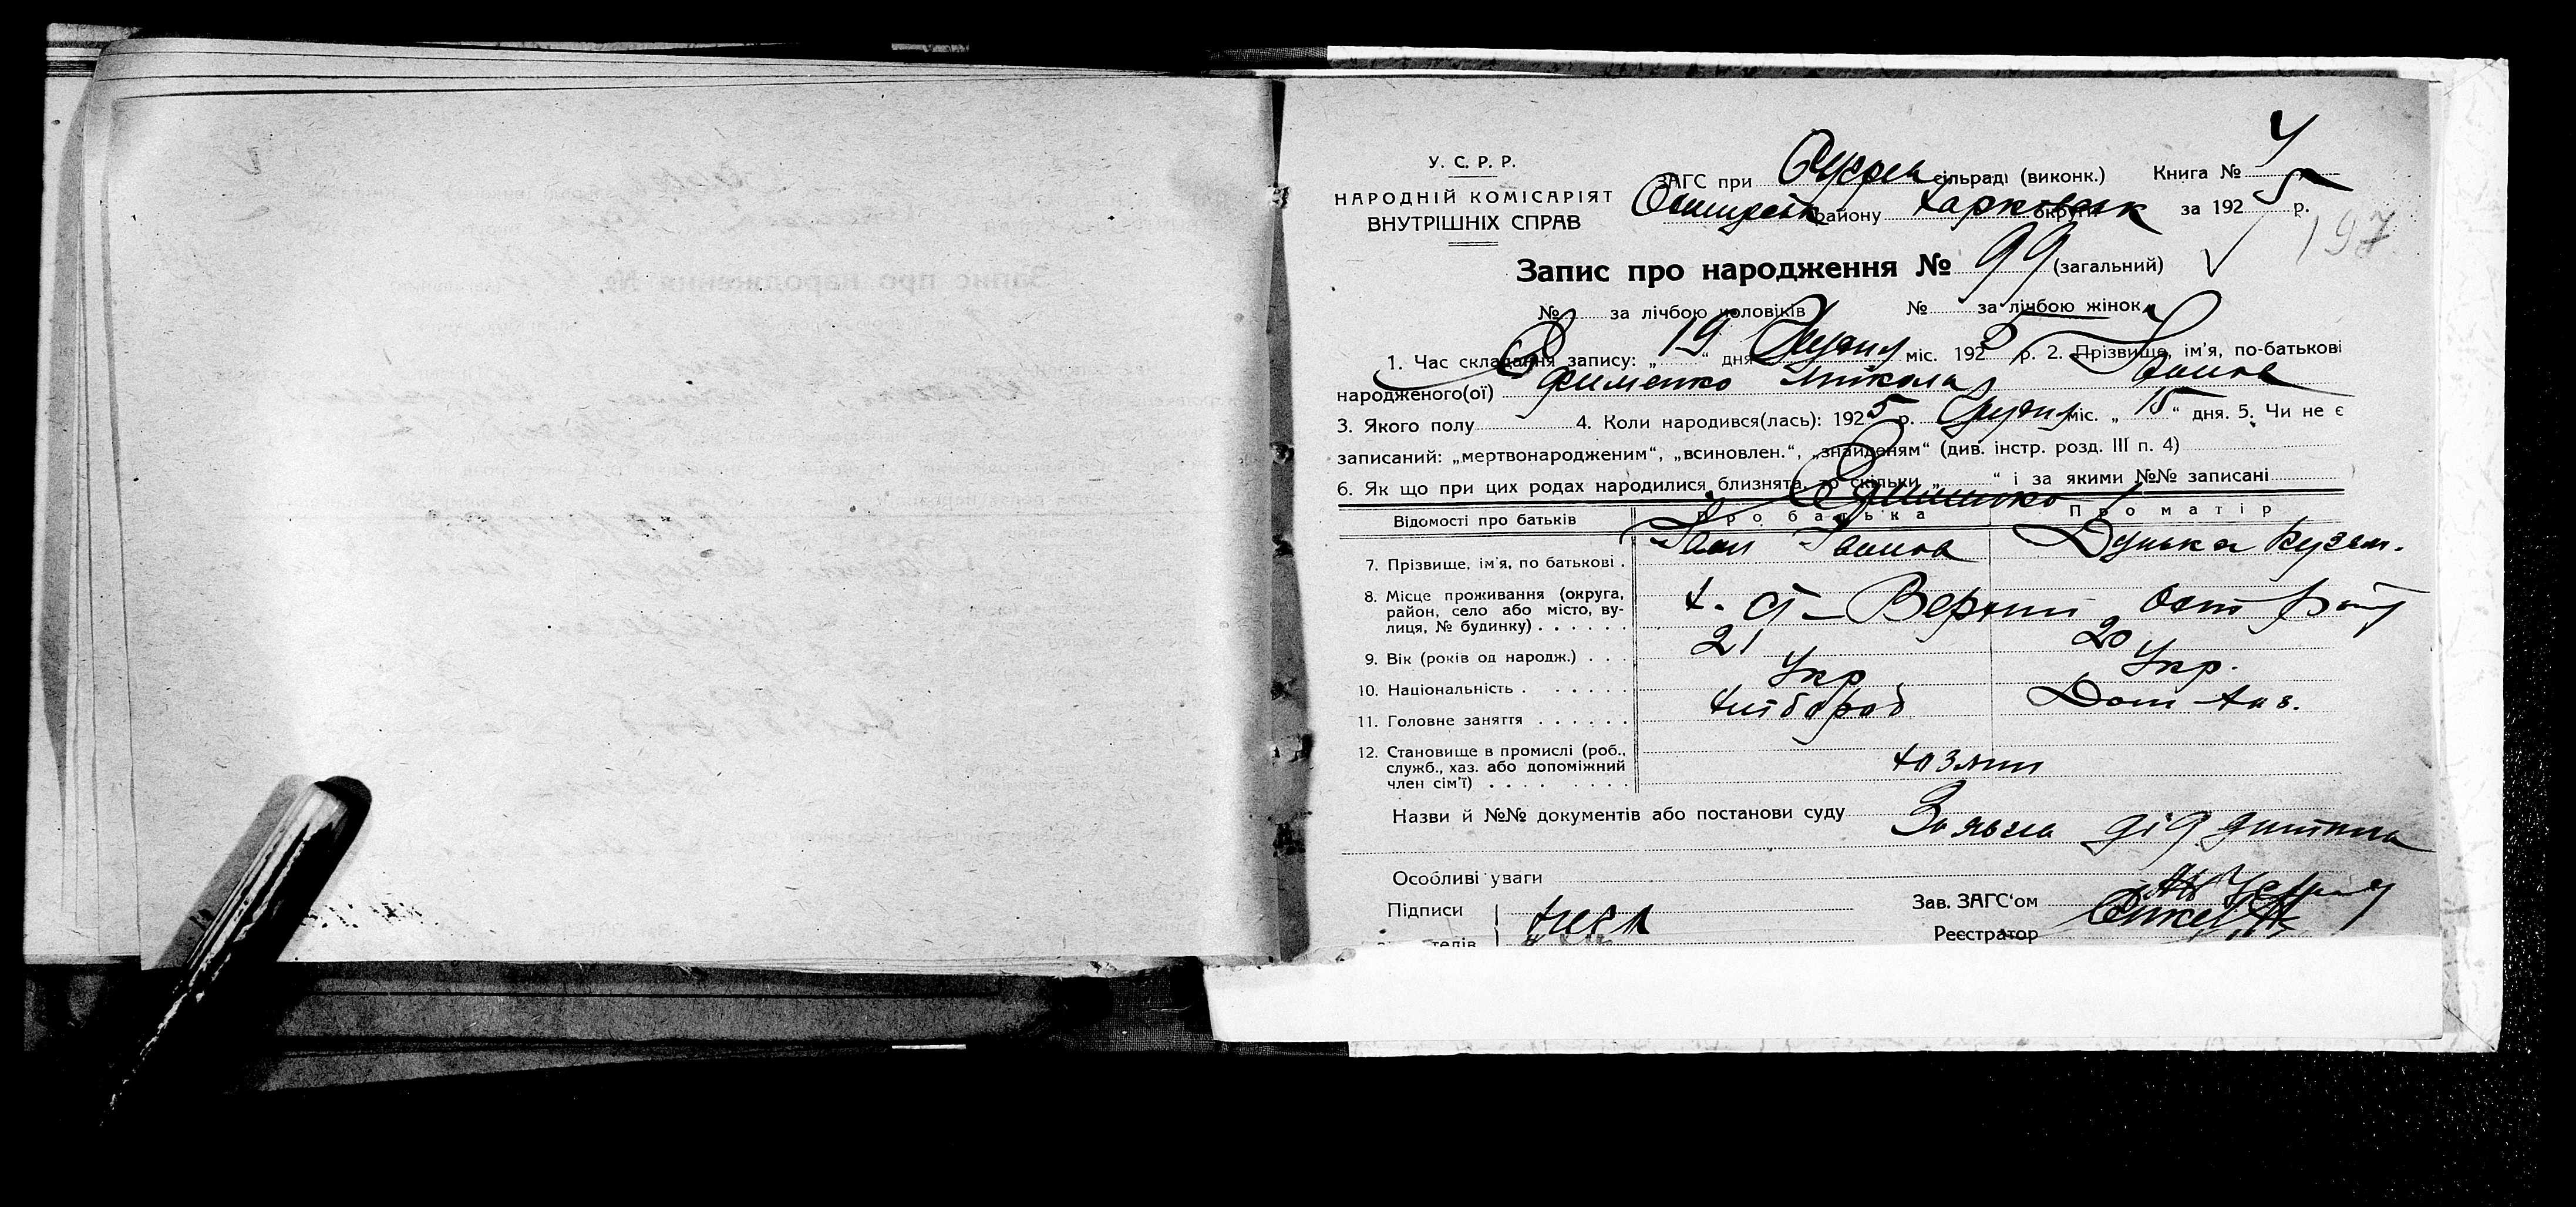 У. С. Р. Р.
НАРОДНІЙ КОМІСАРІЯТ
ВНУТРІШНІХ СПРАВ
ЗАГС при сільраді (виконк.) Книга №
району Харківськ округи за 1925 р.
197
Запис про народження № 99 (загальний)
№ за лічбою чоловіків № за лічбою жінок
1. Час складання запису: „19“ дня Грудня міс. 1925 р. 2. Прізвище, ім'я, по-батькові
народженого(ої) Микола Іванов
3. Якого полу 4. Коли народився(лась): 1925 р. Грудня міс. „15“ дня. 5. Чи не є
записаний: „мертвонародженим“, „всиновлен.“, „знайденям“ (див. інстр. розд. III п. 4)
6. Як що при цих родах народилися близнята, то скільки „ “ і за якими №№ записані
Відомості про батьків Про батька Про матір
7. Прізвище, ім'я, по батькові . Іван Іванов Дунька Кузьм.
8. Місце проживання (округа,
район, село або місто, ву-
лиця, № будинку) . . . . . .
9. Вік (років од народж.) . . . 21 20
10. Національність . . . . . . . Укр. Укр.
11. Головне заняття . . . . . . хлібороб Дом хаз.
12. Становище в промислі (роб.,
служб., хаз. або допоміжний
член сім'ї) . . . . . . . .
Назви й №№ документів або постанови суду Заявив дід
Особливі уваги
Підписи Зав. ЗАГС'ом
Реєстратор